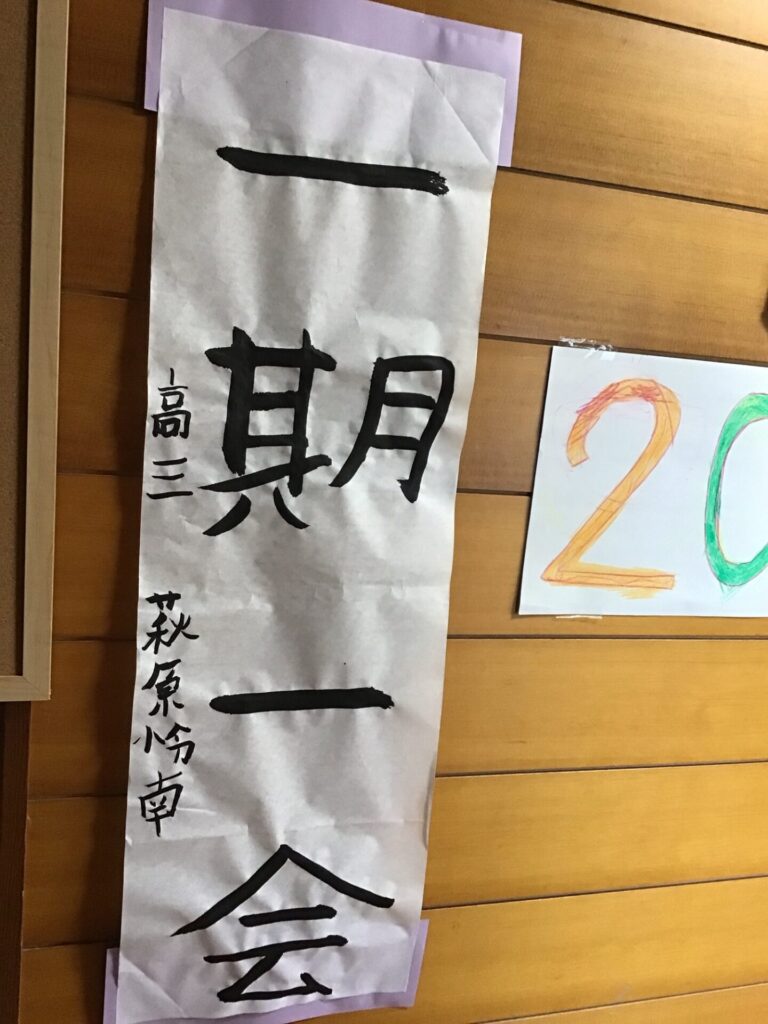 一期一会
高三 萩原怜南
20